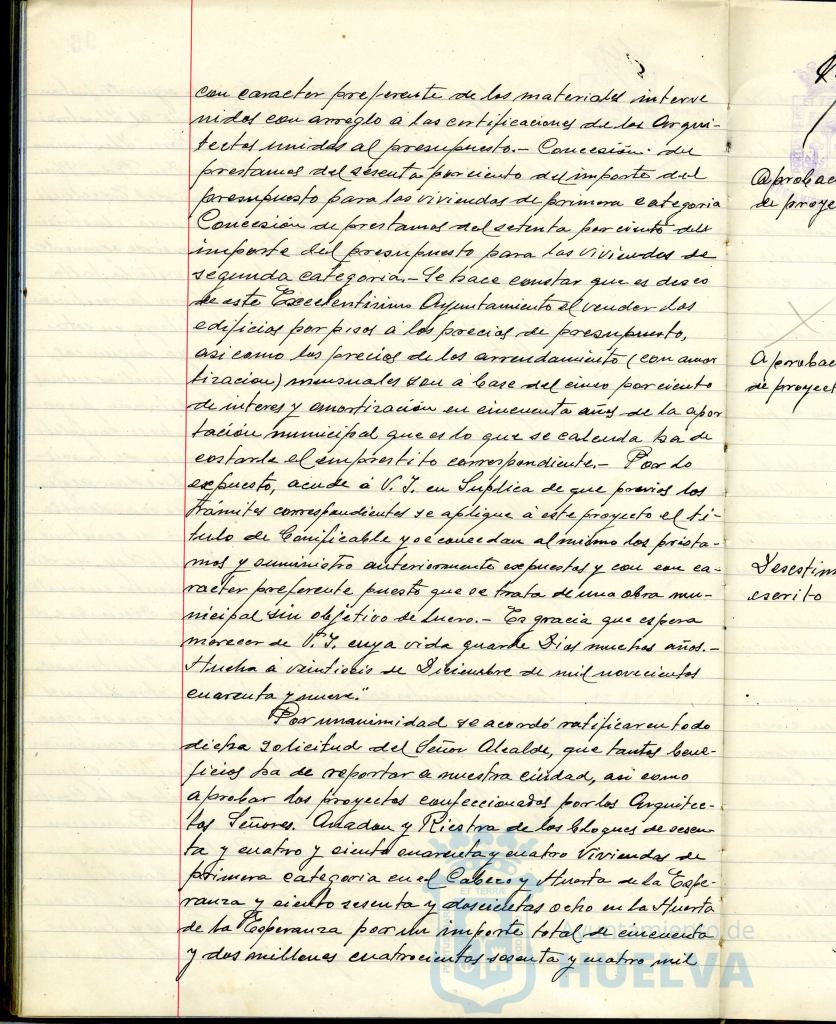 con caracter preferente de los materiales interve
nidos con arreglo a las certificaciones de los Arqui-
tectos unidas al presupuesto.- Concesión de
prestamos del sesenta por ciento del importe del
presupuesto para las viviendas de primera categoria
Concesión de prestamos del setenta por ciento del
importe del presupuesto para las viviendas de
segunda categoria.- Se hace constar que es deseo
de este Excelentisimo Ayuntamiento el vender los
edificios por pisos a los precios de presupuesto,
asi como los precios de los arrendamiento (con amor
tizacion) mensuales son a base del cinco por ciento
de interes y amortización en cincuenta años de la apor
tación municipal que es lo que se calcula ha de
costarle el emprestito correspondiente.- Por lo
expuesto, acude á V. I. en Suplica de que previos los
trámites correspondientes se aplique á este proyecto el tí-
tulo de Bonificable y se concedan al mismo los présta-
mos y suministro anteriormente expuestos y con ca-
racter preferente puesto que se trata de una obra mu-
nicipal sin objetivo de lucro.- Es gracia que espera
merecer de V. I. cuya vida guarde Dios muchos años.-
Huelva á veintiseis de Diciembre de mil novecientos
cuarenta y nueve."
Por unanimidad se acordó ratificar en todo
dicha solicitud del Señor Alcalde, que tantos bene-
ficios ha de reportar a nuestra ciudad, asi como
aprobar los proyectos confeccionados por los Arquitec-
tos Señores. Anadon y Riestra de los bloques de sesen-
ta y cuatro y ciento cuarenta y cuatro viviendas de
primera categoria en el Cabezo y Huerta de la Espe-
ranza y ciento sesenta y doscientas ocho en la Huerta
de la Esperanza por un importe total de cincuenta
y dos millones cuatrocientas sesenta y cuatro mil
Aprobac
de proye
Aprobac
de proyect
Desestim
escrito
Ayuntamiento de
HUELVA